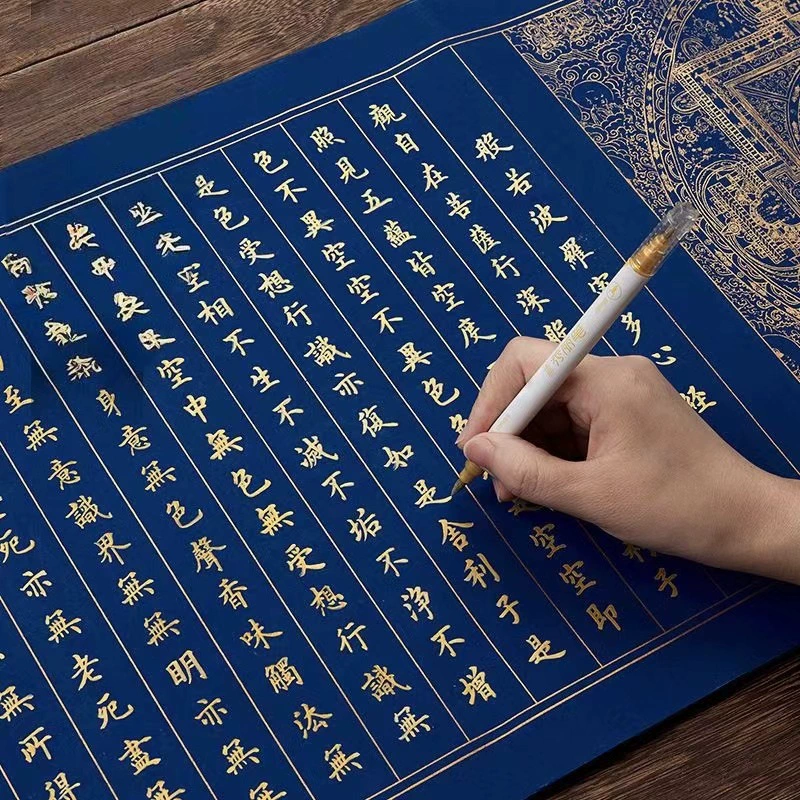 般若波羅蜜多心經
觀自在菩薩行深般
照見五蘊皆空度 子
色不異空空不異色色 是空空即
是色受想行識亦復如是舍利子是
空相不生不滅不垢不淨不增
空中無色無受想行識無
身意無色聲香味觸法無
至無意識界無無明亦無
死亦無老死盡
無所得